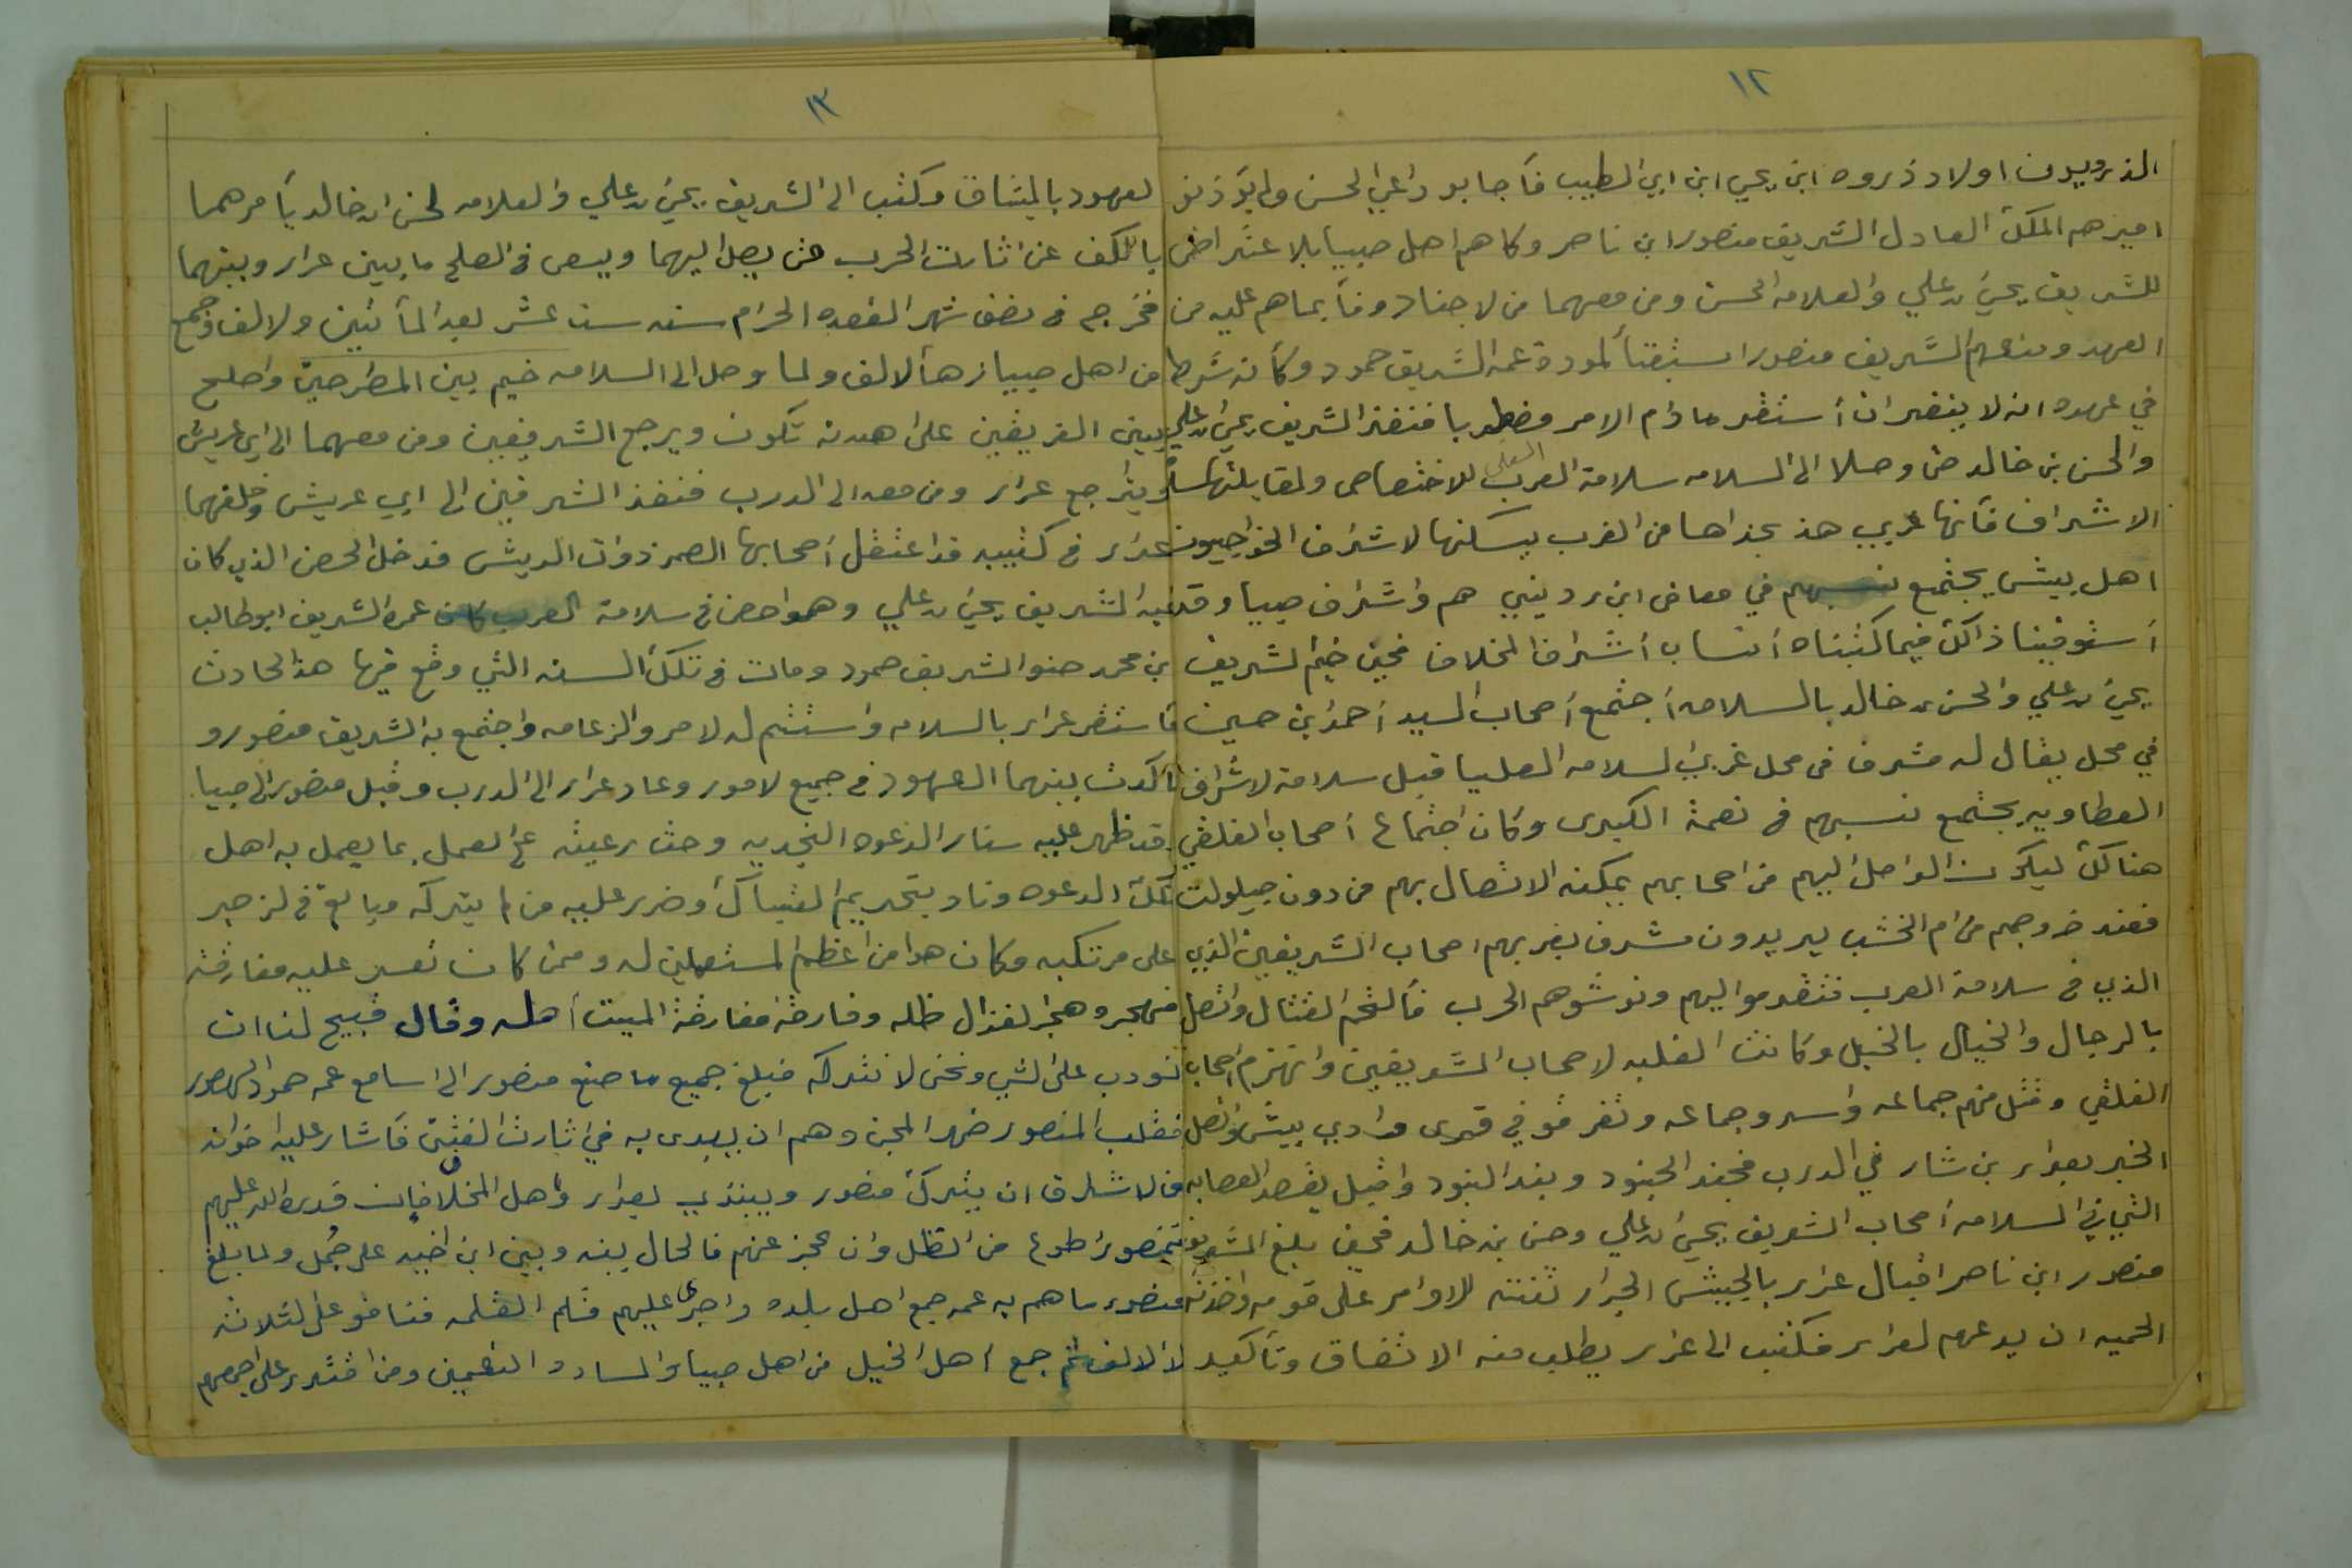 ١٢
الذرويون اولاد ذروه ابن يحيى ابن ابي الطيب فأجابو داعي الحسن ولم يؤذنو
اميرهم الملك العادل الشريف منصور ابن ناصر وكاهم اهل صبيا بلا اعتراض
للشريف يحيى بن علي والعلامه الحسن ومن معهما من لاجناد وفأ بماهم عليه من
العهد ومنعهم الشريف منصور استبقتأ لمودة عمه الشريف حمود وكأنه شرط
في عهده انه لا ينفر ان أستقر مادام الامر مضطربا فنفذ الشريف يحيى بن علي
والحسن بن خالد حتى وصلا الى السلامه سلامة العرب السفلى للاختصاص ولمقابلتها
الاشراف فأنها غربي هذ بحذاها من الغرب يسكنها لاشراف الخواجيون
اهل بيش يجتمع نسبهم في معافى ابن رديني هم واشراف صبيا وقد
أستوفينا ذالك فيما كتبناه أنساب أشراف المخلاف فحين خيم الشريف
يحيى بن علي والحسن بن خالد بالسلامه أجتمع أصحاب السيد أحمد ابن حسين
في محل يقال له مشرف في محل غربي السلامه العليا قبل سلامة لاشراف
العطاويه يجتمع نسبهم في نعمة الكبرى وكان اجتماع أصحاب الفلقي
هنالك ليكون الواصل اليهم من اصحابهم يمكنه الاتصال بهم من دون حيلولت
فعند خروجهم من ام الخشب يريدون مشرف بغربهم اصحاب الشريفين الذي
الذي في سلامة العرب فتقدموا اليهم ونوشوهم الحرب فألتحم القتال واتصل
بالرجال والخيال بالخيل وكانت الغلبه لاصحاب الشريفين وانهزم اصحاب
الفلقي وقتل منهم جماعه واسر وجماعه وتفرقو في قرى وادي بيش واتصل
الخبر بعرار بن شار في الدرب فجند الجنود وبند البنود واقبل يقصد العصابه
التي في السلامه أصحاب الشريف يحيى بن علي وحسن بن خالد فحين بلغ الشريف
منصور ابن ناصر اقبال عرار بالجيش الجرار ثقته الاوامر على قومه واخذته
الحميه ان يدعهم لعرار فكتب الى عرار يطلب منه الاتفاق وتأكيد
١٣
لعهود بالميثاق وكتب الى الشريف يحيى بن علي والعلامه لحسن ابن خالد يأمرهما
بالكف عن اثارت الحرب حتى يصل اليهما ويسعى في الصلح ما بين عرار وبينهما
فخرج في نصف شهر القعده الحرام سنه ست عشر بعد المأتين ولالف وجمع
من اهل صبيا زهأ لالف ولما وصل الى السلامه خيم بين المطرحين واصلح
بين الفريقين على هدنه تكون ويرجع الشريفين ومن معهما الى ابي عريش
ويتراجع عرار ومن معه الى الدرب فنفذ الشرفين الى ابي عريش وخلفهما
عرار في كتيبه قد اعتقل أصحابها الصم ذوات الريش فدخل الحصن الذي كان
فيه الشريف يحيى بن علي وهو احصن في سلامة العرب كان عمره الشريف ابو طالب
بن محمد صنو الشريف حمود ومات في تلك السنه التي وقع فيها هذ الحادث
فأستقر عرار بالسلامه وأستتم له لامر والزعامه واجتمع به الشريف منصور و
تأكدت بينهما العهود في جميع لامور وعاد عرار الى الدرب وقبل منصور الى صبيا
وقد ظهر عليه ستار الدعوه النجديه وحث رعيته على العمل بما يعمل به اهل
تلك الدعوه وناد بتحريم التنباك وضرر عليه من لم يتركه وبالغ في لزجر
على مرتكبه وكان هوا من اعظم المستعملين له وممن كان تعسر عليه مفارقته
فهجرو هجر لغزال ظله وفارقه مفارقة الميت أهله وقال قبيح لنا ان
نودب على الشي ونحن لا نتركه فبلغ جميع ما صنع منصور الى اسامع عمه حمود المهصور
فقلب المنصور ضهر المجن وهم ان يبدى به في اثارت الفتن فأشار عليه اخوانه
من لاشراف ان يترك منصور ويبتدي بعرار وأهل المخلاف فإن قدره الله عليهم
فمنصور أطوع من الظل وان عجز عنهم فالحال بينه وبين ابن اخيه على جمل ولما بلغ
منصور ما هم به عمه جمع اهل بلده واجرى عليهم قلم القلمه فنافو على لثلاثه
لالالف ثم جمع اهل الخيل من اهل صبيا والساده النعميين ومن اقتدر على اجمعهم